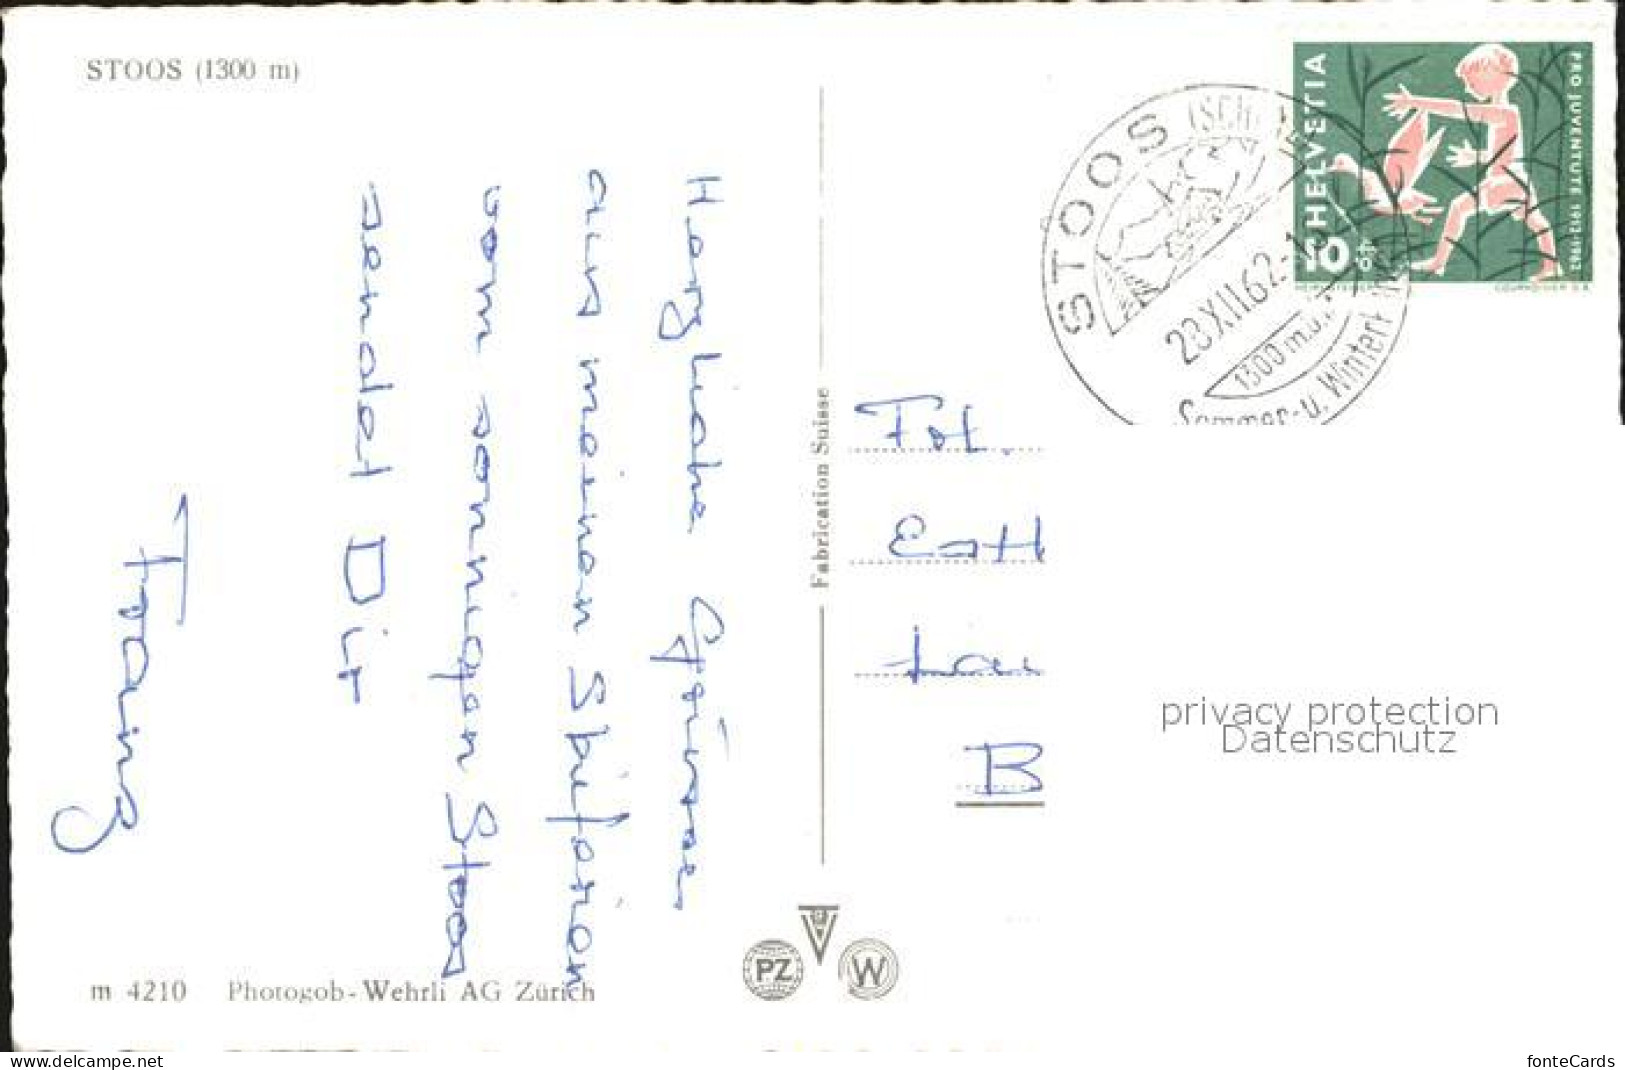 STOOS (1300 m)
Herzliche Grüsse
aus meinen Skiferien
vom sonnigen Stoos
sendet Dir
Franz
Fabrication Suisse
m 4210 Photogob-Wehrli AG Zürich
PZ
W
STOOS (SCH
28.XII.62.-1
1300 m.ü.
Sommer- u. Winterk
HELVETIA
PRO JUVENTUTE 1912-1962
10
COURVOISIER S.A.
Frl.
B
privacy protection
Datenschutz
www.delcampe.net
fonteCards